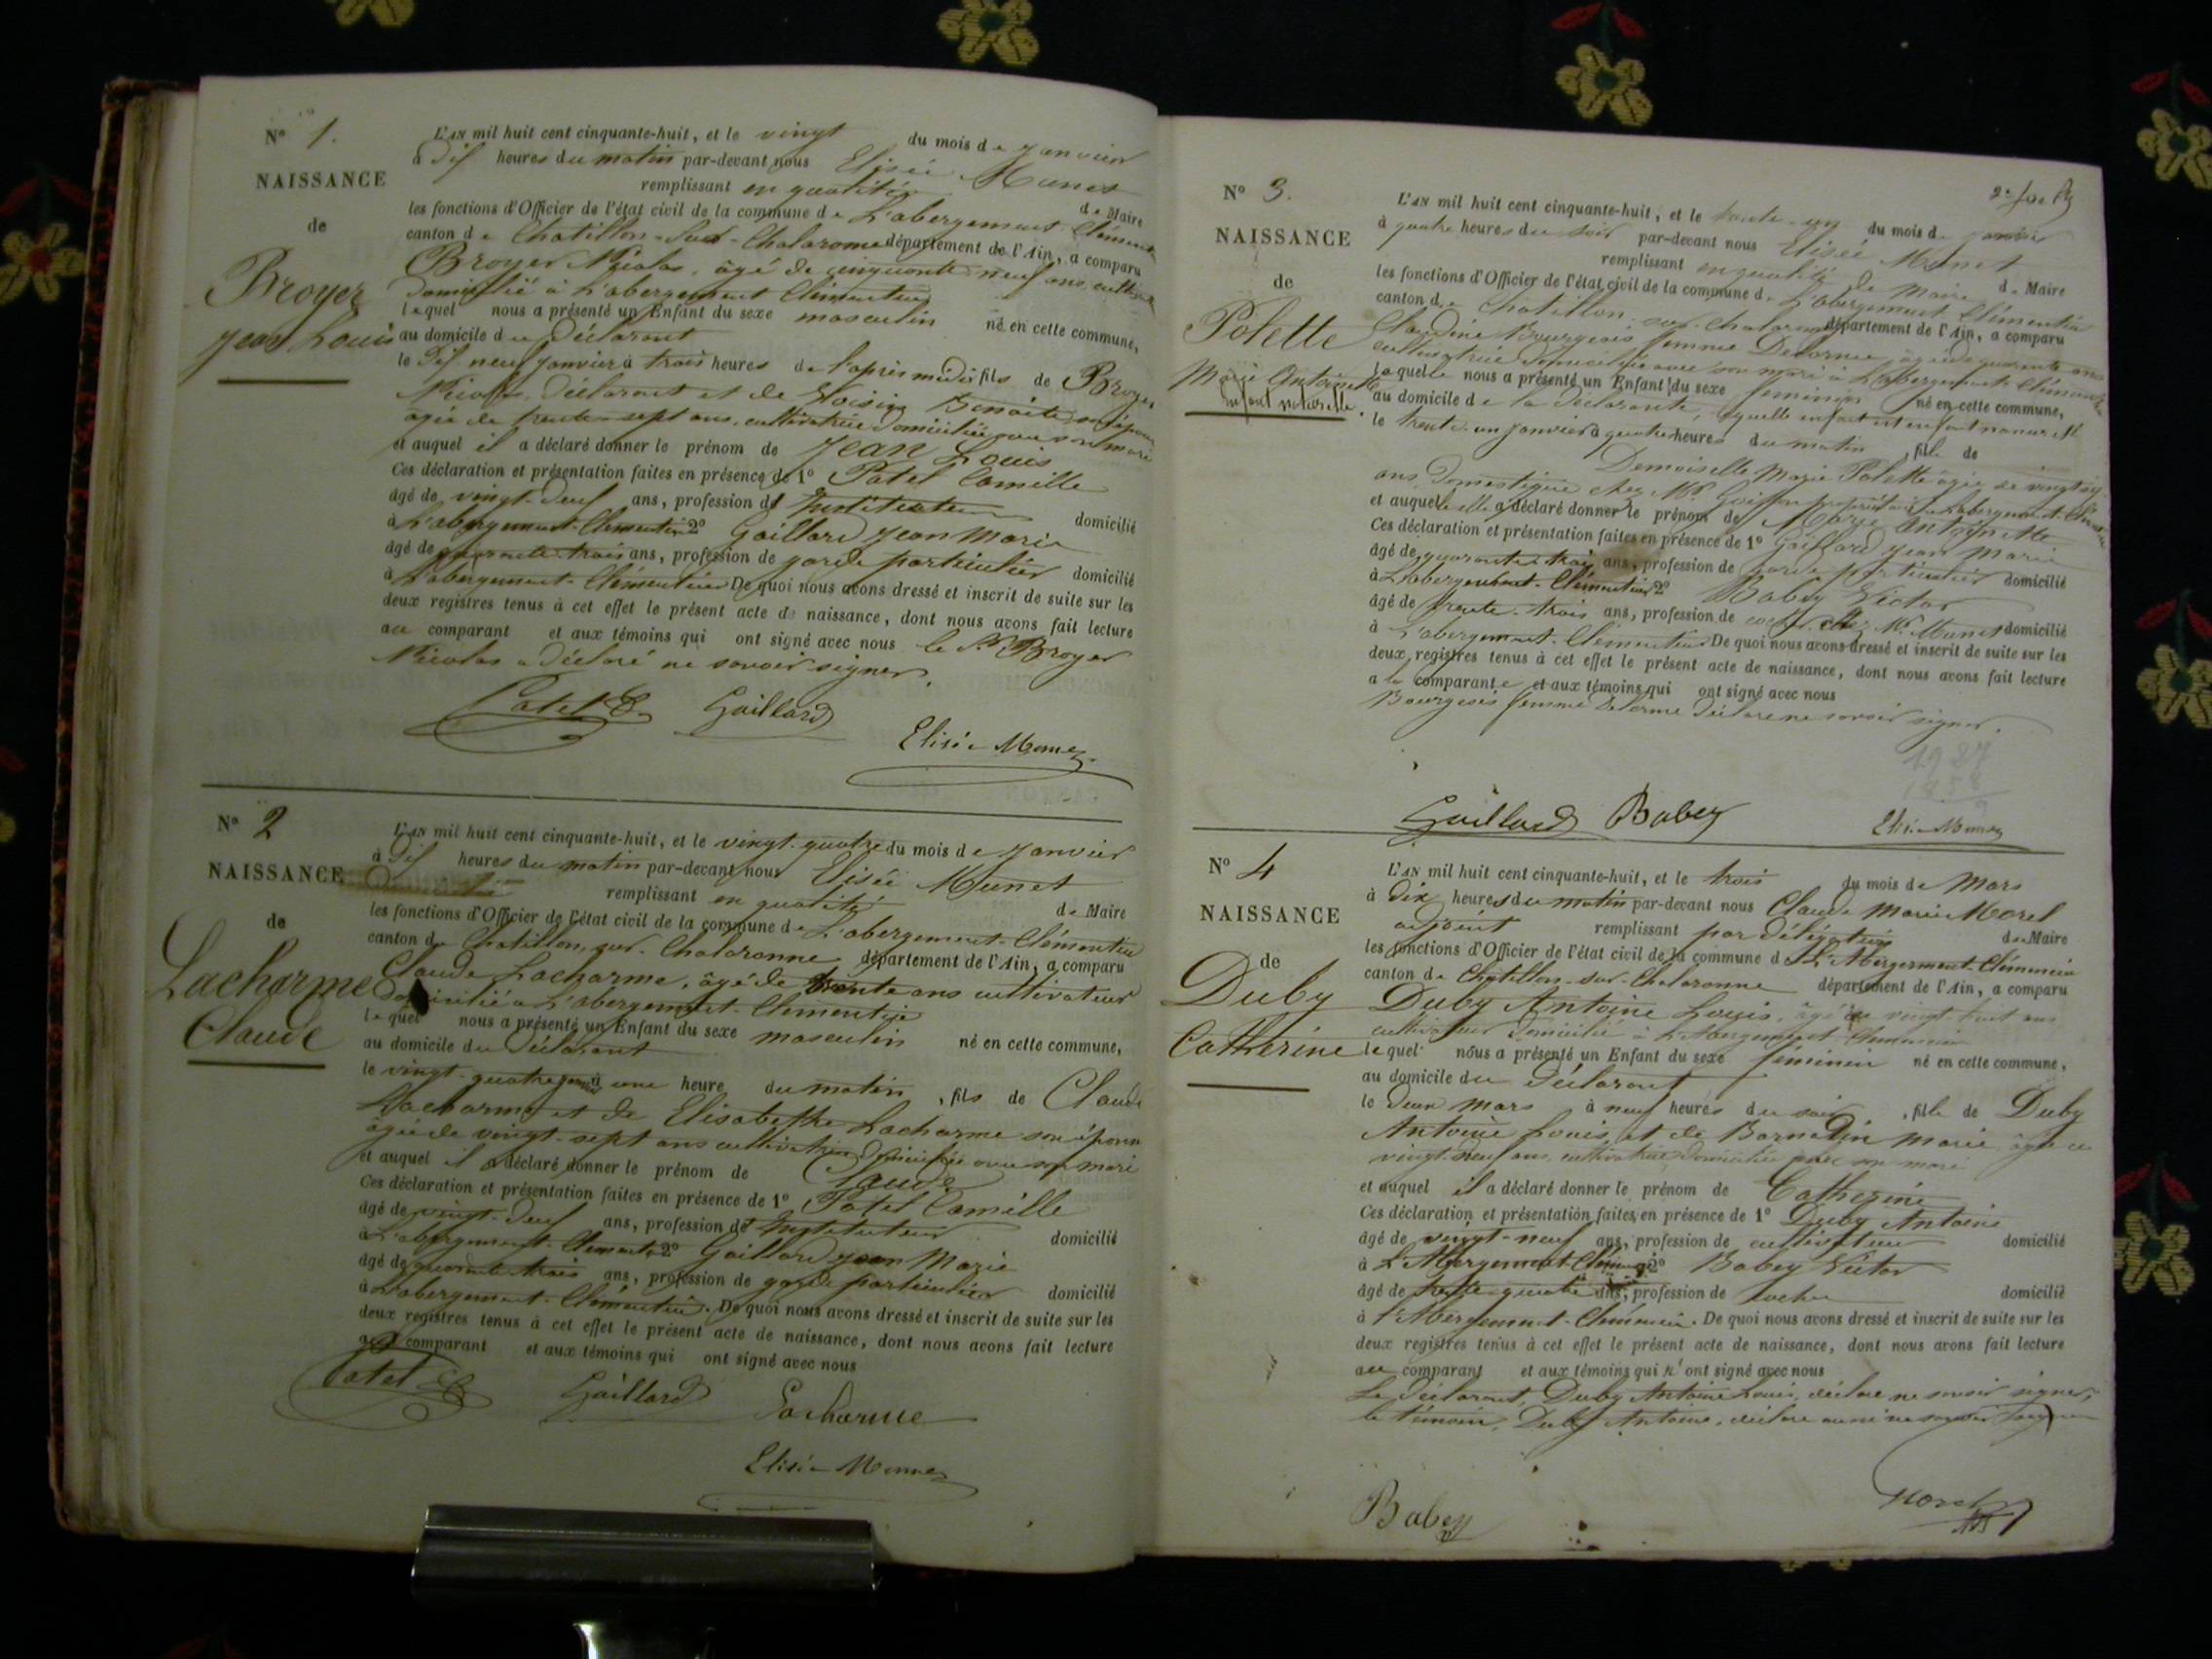 N° 1.
NAISSANCE
de
Broyer
Jean Louis
L'AN mil huit cent cinquante-huit, et le vingt du mois de janvier
à dix heures du matin par-devant nous Elisée Munet
remplissant en qualité de Maire
les fonctions d'Officier de l'état civil de la commune de L'abergement Clémentia
canton de Chatillon-Sur-Chalaronne département de l'Ain, a comparu
Broyer Nicolas, âgé de cinquante neuf ans,
domicilié à L'abergement Clémentia
lequel nous a présenté un Enfant du sexe masculin né en cette commune,
au domicile du déclarant
le dix neuf janvier à trois heures de l'après midi fils de Broyer
Nicolas, déclarant et de Voisin Benoite son épouse
agée de trente-sept ans, cultivatrice domiciliée avec son mari
et auquel il a déclaré donner le prénom de Jean Louis
Ces déclaration et présentation faites en présence de 1° Patel Camille
âgé de vingt-deux ans, profession d' Instituteur domicilié
à L'abergement-Clémentia 2° Gaillard Jean Marie
âgé de quarante trois ans, profession de garde particulier domicilié
à L'abergement-Clémentia De quoi nous avons dressé et inscrit de suite sur les
deux registres tenus à cet effet le présent acte de naissance, dont nous avons fait lecture
au comparant et aux témoins qui ont signé avec nous le Sr Broyer
Nicolas a déclaré ne savoir signer.
Patel C. Gaillard
Elisée Munet
N° 2
NAISSANCE
de
Lacharme
Claude
L'AN mil huit cent cinquante-huit, et le vingt-quatre du mois de janvier
à dix heures du matin par-devant nous Elisée Munet
remplissant en qualité de Maire
les fonctions d'Officier de l'état civil de la commune de L'abergement-Clémentia
canton de Chatillon-sur-Chalaronne département de l'Ain, a comparu
Claude Lacharme, âgé de trente ans cultivateur
domicilié à L'abergement-Clémentia
lequel nous a présenté un Enfant du sexe masculin né en cette commune,
au domicile du déclarant
le vingt-quatre janvier à une heure du matin, fils de Claude
Lacharme et de Elisabethe Lacharme son épouse
agée de vingt-sept ans cultivatrice domiciliée avec son mari
et auquel il a déclaré donner le prénom de Claude
Ces déclaration et présentation faites en présence de 1° Patel Camille
âgé de vingt-deux ans, profession d' Instituteur domicilié
à L'abergement-Clémentia 2° Gaillard Jean Marie
âgé de quarante trois ans, profession de garde particulier domicilié
à L'abergement-Clémentia. De quoi nous avons dressé et inscrit de suite sur les
deux registres tenus à cet effet le présent acte de naissance, dont nous avons fait lecture
au comparant et aux témoins qui ont signé avec nous
Patel C. Gaillard Lacharme
Elisée Munet
N° 3.
NAISSANCE
de
Polette
Marie Antoinette
enfant naturelle.
L'AN mil huit cent cinquante-huit, et le trente-un du mois de janvier
à quatre heures du soir par-devant nous Elisée Munet
remplissant en qualité de Maire de Maire
les fonctions d'Officier de l'état civil de la commune de L'abergement Clémentia
canton de Chatillon-sur-Chalaronne département de l'Ain, a comparu
Claudine Bourgeois femme Delorme, âgée de quarante ans
cultivatrice domiciliée avec son mari à L'abergement-Clémentia
laquelle nous a présenté un Enfant du sexe féminin né en cette commune,
au domicile de la déclarante, laquelle enfant est enfant naturelle
le trente-un janvier à quatre heures du matin, fille de
Demoiselle Marie Polette âgée de vingt six
ans, domestique chez Mr propriétaire à L'abergement-Clémentia
et auquel elle a déclaré donner le prénom de Marie Antoinette
Ces déclaration et présentation faites en présence de 1° Gaillard Jean Marie
âgé de quarante trois ans, profession de garde particulier domicilié
à L'abergement-Clémentia 2° Babey Victor
âgé de trente-trois ans, profession de cocher chez Mr. Munet domicilié
à L'abergement-Clémentia De quoi nous avons dressé et inscrit de suite sur les
deux registres tenus à cet effet le présent acte de naissance, dont nous avons fait lecture
a la comparante et aux témoins qui ont signé avec nous
Bourgeois femme Delorme déclare ne savoir signer.
Gaillard Babey Elisée Munet
N° 4
NAISSANCE
de
Duby
Catherine
L'AN mil huit cent cinquante-huit, et le trois du mois de Mars
à dix heures du matin par-devant nous Claude Marie Morel
adjoint remplissant par délégation de Maire
les fonctions d'Officier de l'état civil de la commune de L'Abergement-Clémencia
canton de Chatillon-sur-Chalaronne département de l'Ain, a comparu
Duby Antoine Louis, âgé de vingt huit ans
cultivateur domicilié à L'Abergement Clémencia
lequel nous a présenté un Enfant du sexe féminin né en cette commune,
au domicile du déclarant
le deux mars à neuf heures du soir, fille de Duby
Antoine Louis, et de Bernadin Marie âgée de
vingt-neuf ans, cultivatrice domiciliée avec son mari
et auquel il a déclaré donner le prénom de Catherine
Ces déclaration et présentation faites en présence de 1° Duby Antoine
âgé de vingt-neuf ans, profession de cultivateur domicilié
à L'Abergement-Clémencia 2° Babey Victor
âgé de trente-quatre ans, profession de cocher domicilié
à l'Abergement-Clémencia. De quoi nous avons dressé et inscrit de suite sur les
deux registres tenus à cet effet le présent acte de naissance, dont nous avons fait lecture
au comparant et aux témoins qui n'ont signé avec nous
Le déclarant, Duby Antoine Louis, déclare ne savoir signer,
le témoin, Duby Antoine, déclare aussi ne savoir signer
Babey Morel